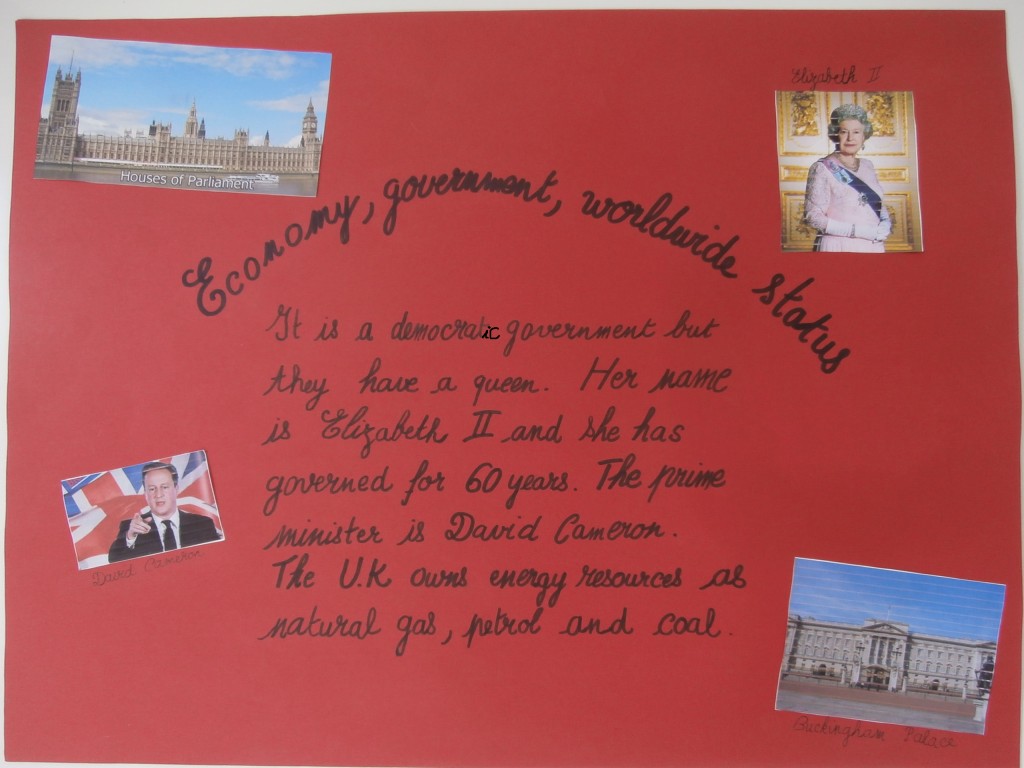 Elizabeth II
Houses of Parliament
Economy, government, worldwide status
It is a democratic government but
they have a queen. Her name
is Elizabeth II and she has
governed for 60 years. The prime
minister is David Cameron.
The U.K owns energy resources as
natural gas, petrol and coal.
David Cameron
Buckingham Palace